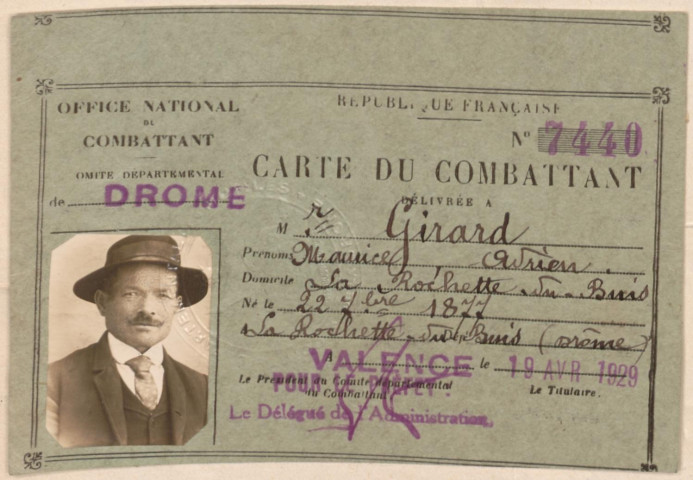 OFFICE NATIONAL
DU
COMBATTANT
OMITE DEPARTEMENTAL
de DROME
REPUBLIQUE FRANÇAISE
N° 7440
CARTE DU COMBATTANT
DÉLIVRÉE A
M r Girard
Prénoms Maurice Adrien.
Domicile La Rochette-du-Buis
Né le 22 7bre 1877
à La Rochette-du-Buis (Drôme)
A VALENCE le 19 AVR 1929
Le Président du Comité départemental
du Combattant
POUR LE PREFET:
Le Titulaire.
Le Délégué de l'Administration,